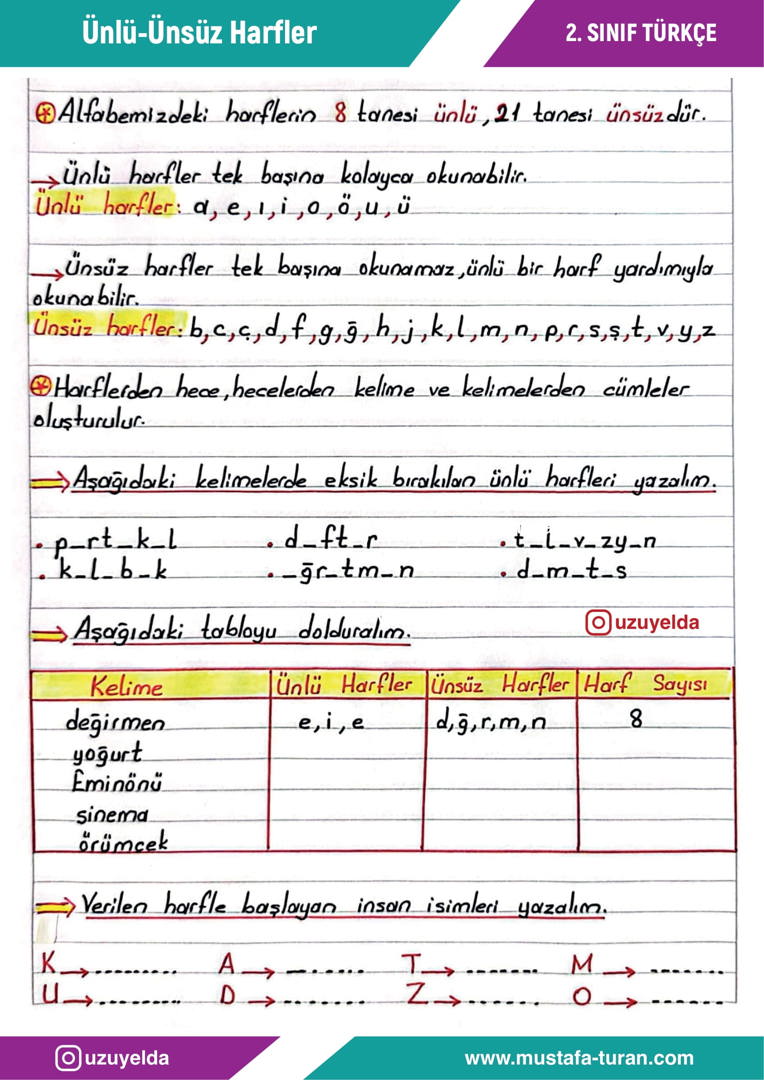 Ünlü-Ünsüz Harfler
2. SINIF TÜRKÇE
Alfabemizdeki harflerin 8 tanesi ünlü, 21 tanesi ünsüzdür.
→Ünlü harfler tek başına kolayca okunabilir.
Ünlü harfler: a, e, ı, i, o, ö, u, ü
→Ünsüz harfler tek başına okunamaz, ünlü bir harf yardımıyla
okunabilir.
Ünsüz harfler: b, c, ç, d, f, g, ğ, h, j, k, l, m, n, p, r, s, ş, t, v, y, z
Harflerden hece, hecelerden kelime ve kelimelerden cümleler
oluşturulur.
⇒Aşağıdaki kelimelerde eksik bırakılan ünlü harfleri yazalım.
• p_rt_k_l • d_ft_r • t_l_v_zy_n
• k_l_b_k • _ğr_tm_n • d_m_t_s
⇒Aşağıdaki tabloyu dolduralım.
uzuyelda
Kelime Ünlü Harfler Ünsüz Harfler Harf Sayısı
değirmen e, i, e d, ğ, r, m, n 8
yoğurt
Eminönü
sinema
örümcek
⇒Verilen harfle başlayan insan isimleri yazalım.
K→.......... A→.......... T→.......... M→..........
U→.......... D→.......... Z→.......... O→..........
uzuyelda
www.mustafa-turan.com